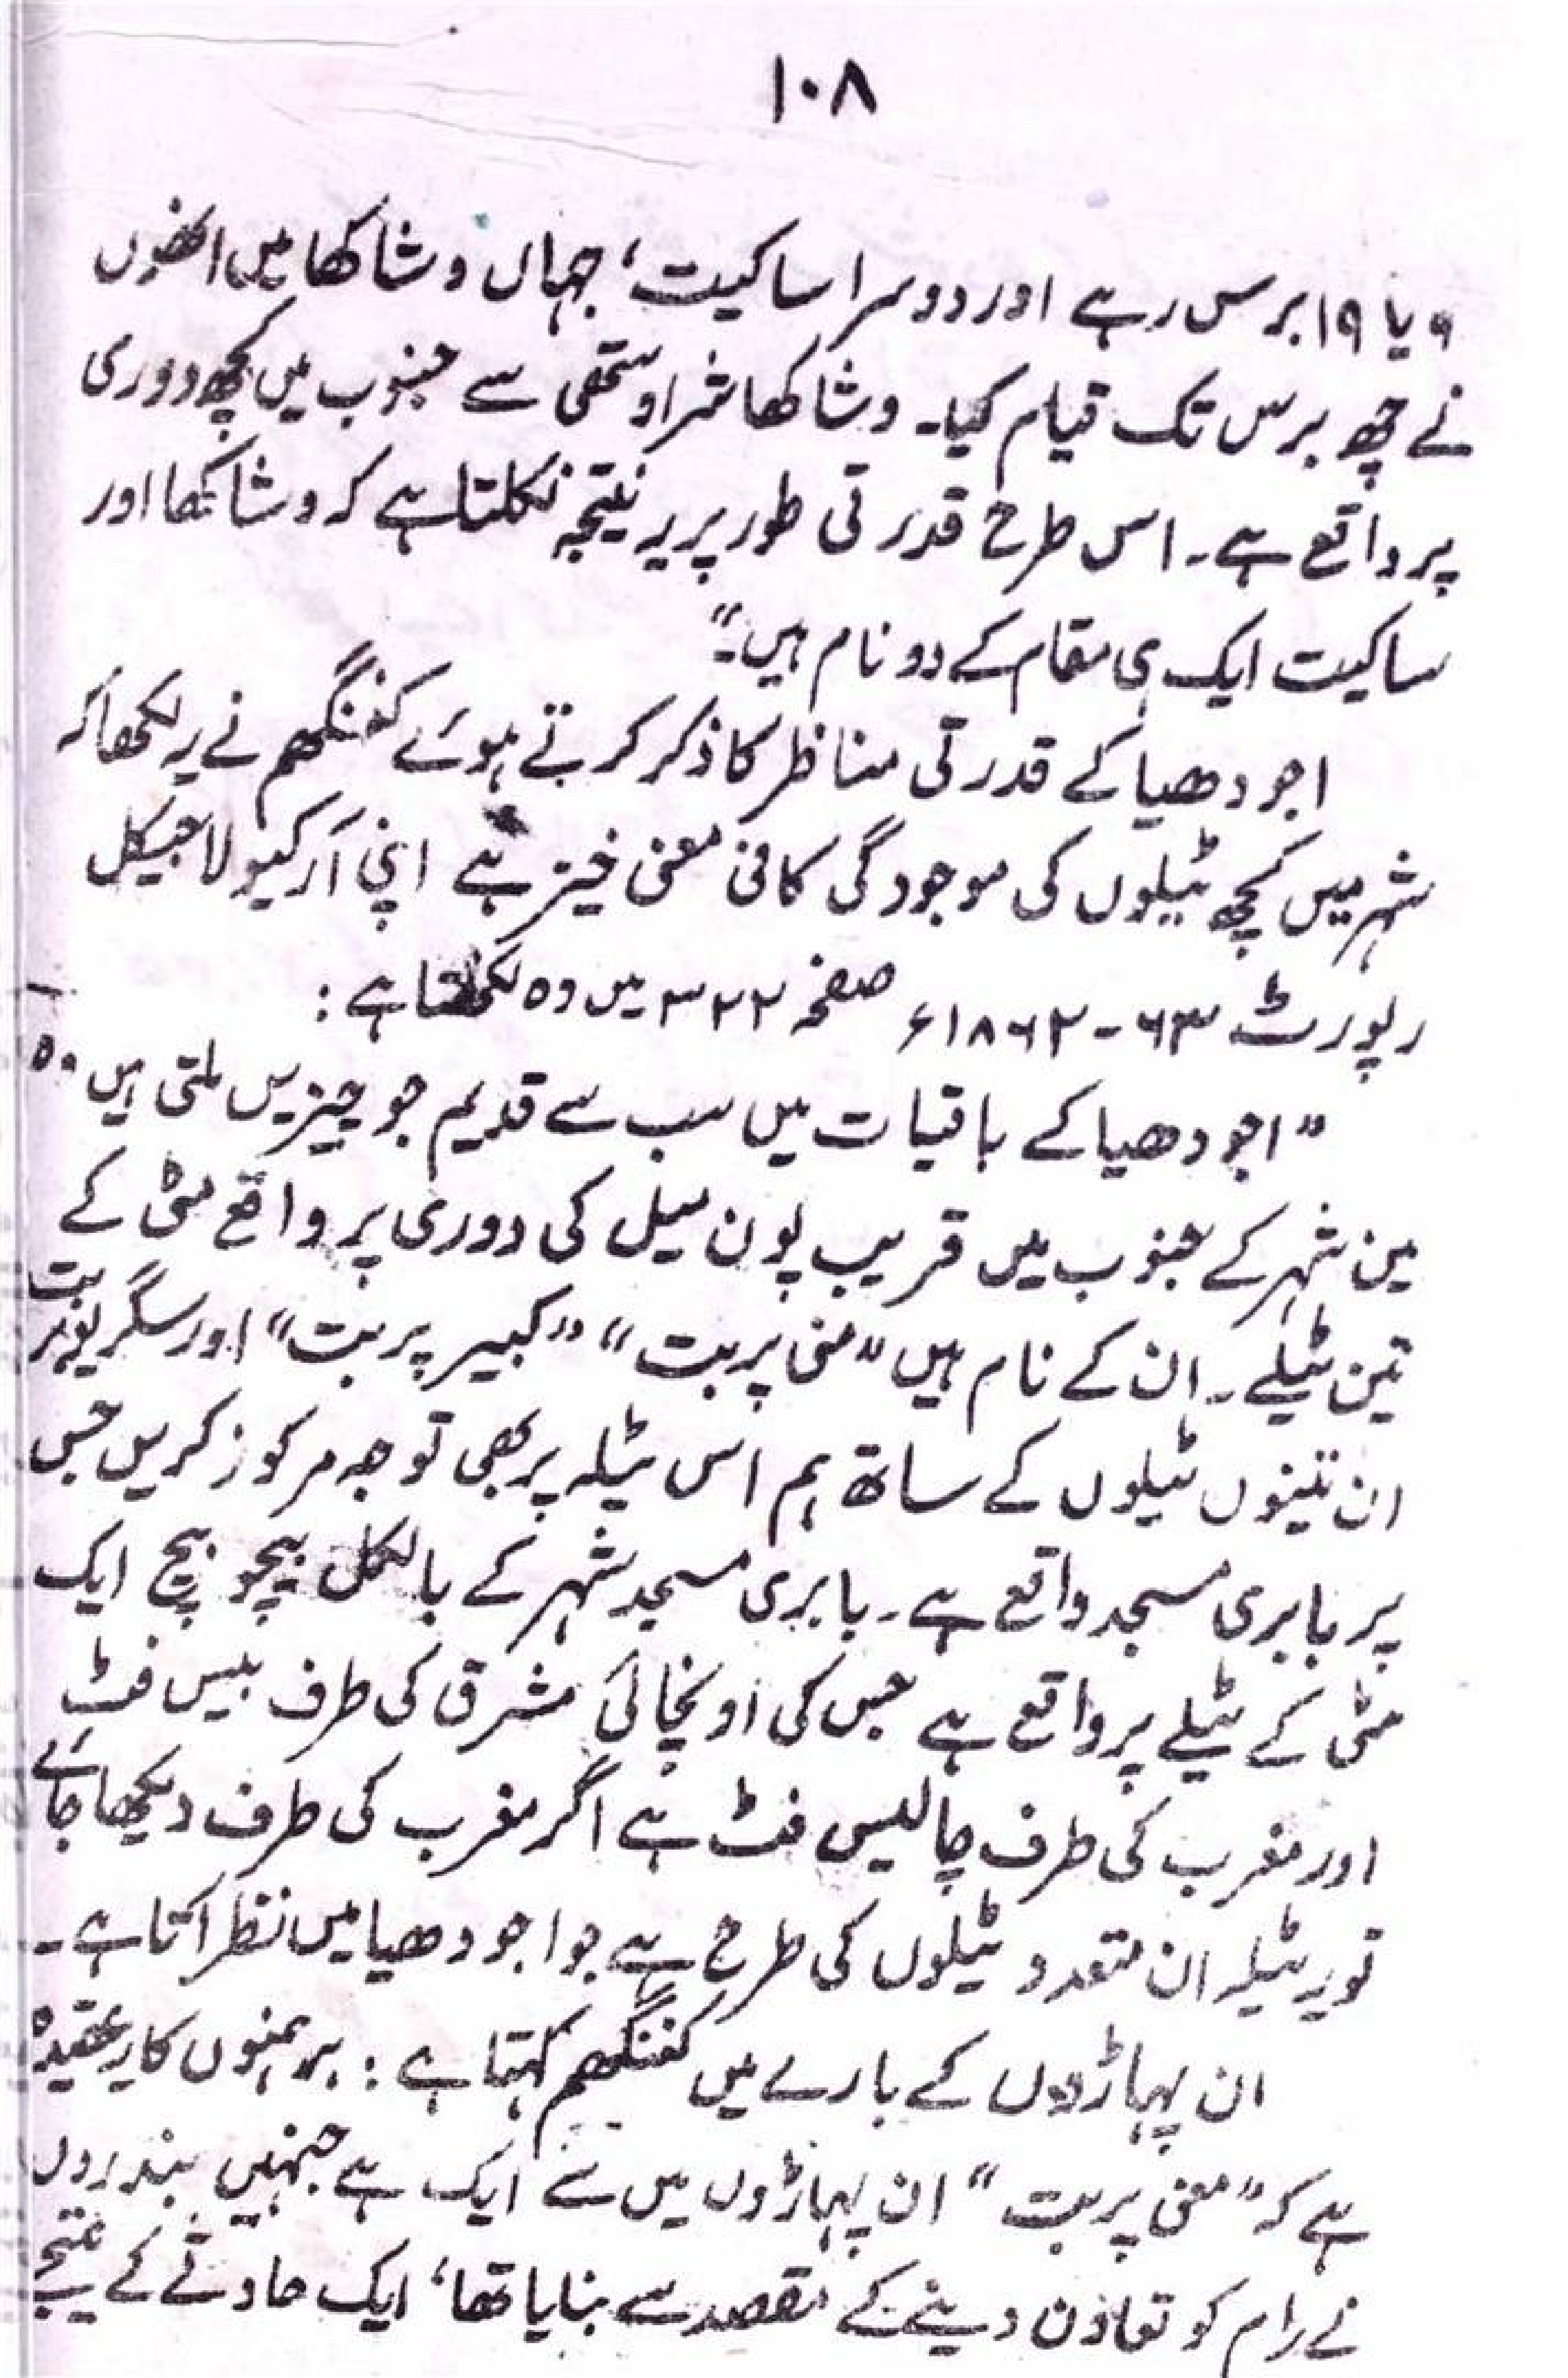 ۱۰۸
۹ یا ۱۹ برس رہے اور دوسرا ساکیت، جہاں وشاکھا میں انھوں
نے چھ برس تک قیام کیا۔ وشاکھا شراوستھی سے جنوب میں کچھ دوری
پر واقع ہے۔ اس طرح قدرتی طور پر یہ نتیجہ نکلتا ہے کہ وشاکھا اور
ساکیت ایک ہی مقام کے دو نام ہیں۔"
اجودھیا کے قدرتی مناظر کا ذکر کرتے ہوئے کننگھم نے یہ لکھا کہ
شہر میں کچھ ٹیلوں کی موجودگی کافی معنی خیز ہے اپنی آرکیولاجیکل
رپورٹ ۶۳-۱۸۶۲ء صفحہ ۳۲۲ میں وہ لکھتا ہے:
"اجودھیا کے باقیات میں سب سے قدیم جو چیزیں ملتی ہیں وہ
ہیں شہر کے جنوب میں قریب پون میل کی دوری پر واقع مٹی کے
تین ٹیلے۔ ان کے نام ہیں "منی پربت" "کبیر پربت" اور سگریو پربت
ان تینوں ٹیلوں کے ساتھ ہم اس ٹیلہ پر بھی توجہ مرکوز کریں جس
پر بابری مسجد واقع ہے۔ بابری مسجد شہر کے بالکل بیچو بیچ ایک
مٹی کے ٹیلے پر واقع ہے جس کی اونچائی مشرق کی طرف بیس فٹ
اور مغرب کی طرف چالیس فٹ ہے اگر مغرب کی طرف دیکھا جائے
تو یہ ٹیلہ ان متعدد ٹیلوں کی طرح ہے جو اجودھیا میں نظر آتا ہے۔
ان پہاڑوں کے بارے میں کننگھم کہتا ہے: برہمنوں کا یہ عقیدہ
ہے کہ "منی پربت" ان پہاڑوں میں سے ایک ہے جنہیں بندروں
نے رام کو تعاون دینے کے مقصد سے بنایا تھا، ایک حادثے کے نتیجے